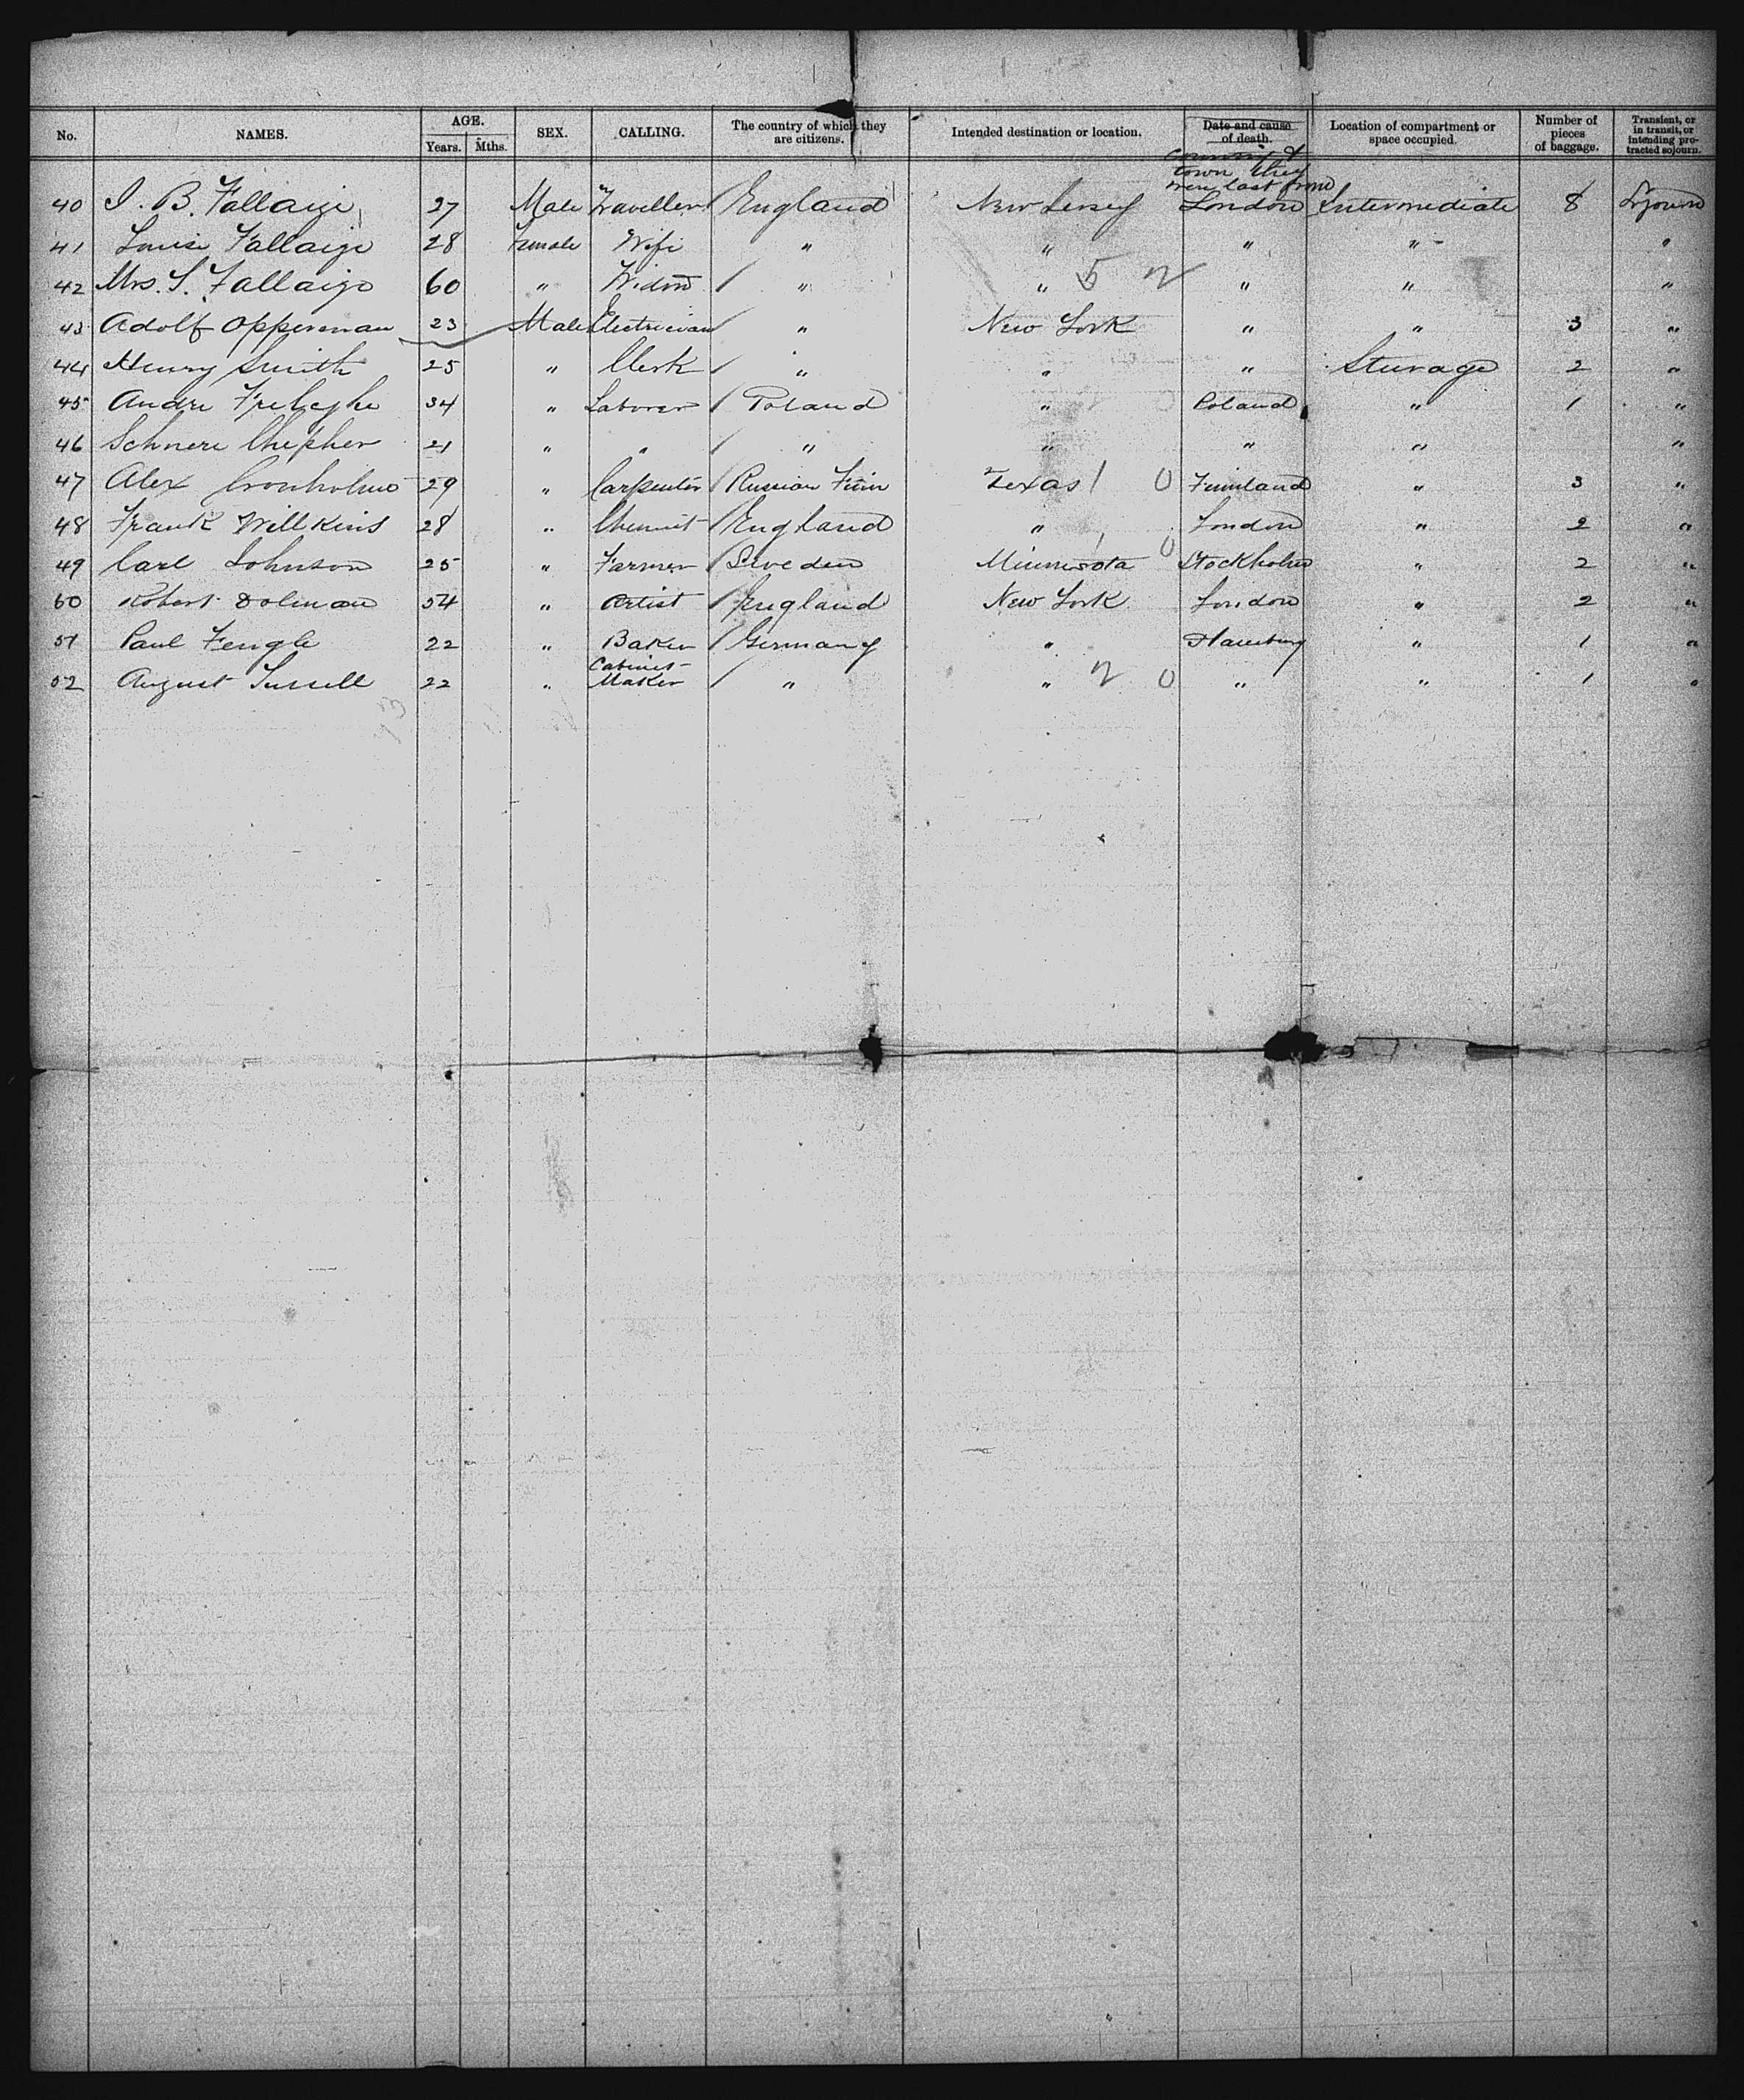 No. NAMES. AGE. Years. Mths. SEX. CALLING. The country of which they are citizens. Intended destination or location. Date and cause of death. Location of compartment or space occupied. Number of pieces of baggage. Transient, or in transit, or intending protracted sojourn.
country & town they were last from
40 I. B. Fallaize 27 Male Traveller England New Jersey London Intermediate 8 Sojourn
41 Louise Fallaize 28 Female Wife " " " " "
42 Mrs. S. Fallaize 60 " Widow / " " 5 2 " " "
43 Adolf Opperman 23 Male Electrician / " New York " " 3 "
44 Henry Smith 25 " Clerk / " " " Steerage 2 "
45 Andre 34 " Laborer / Poland " Poland " 1 "
46 21 " " / " " " " "
47 Alex Cronholm 29 " Carpenter / Russian Finn Texas 1 0 Finnland " 3 "
48 Frank Willkins 28 " Chemist / England " London " 2 "
49 Carl Johnson 25 " Farmer / Sweden Minnesota 0 Stockholm " 2 "
50 Robert Dolman 54 " Artist / England New York London " 2 "
51 Paul Fengle 22 " Baker / Germany " Hamburg " 1 "
52 August 22 " Cabinet- Maker / " " 2 0 " " 1 "
13